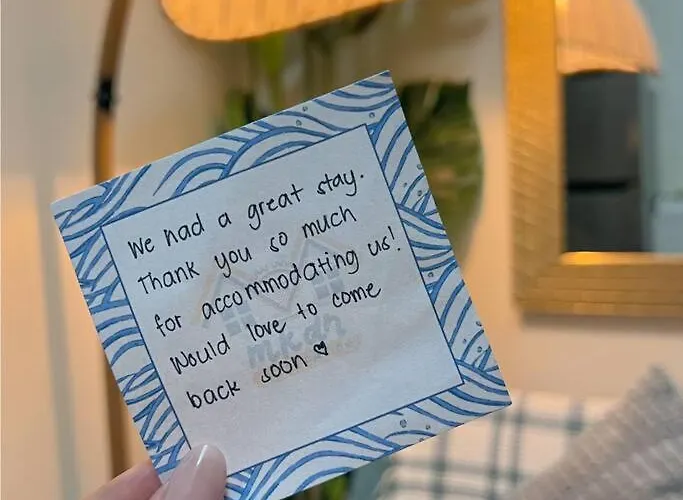 We had a great stay.
Thank you so much
for accommodating us!
Would love to come
back soon ♡